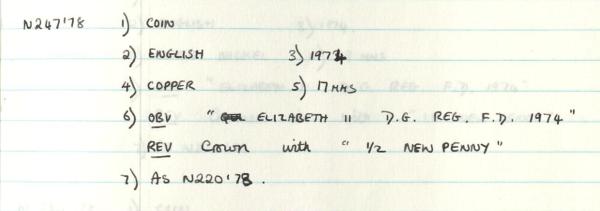 N247'78 1) COIN
2) ENGLISH 3) 1974
4) COPPER 5) 17 MMS
6) OBV " ELIZABETH II D.G. REG. F.D. 1974"
REV Crown with "1/2 NEW PENNY"
7) AS N220'78.